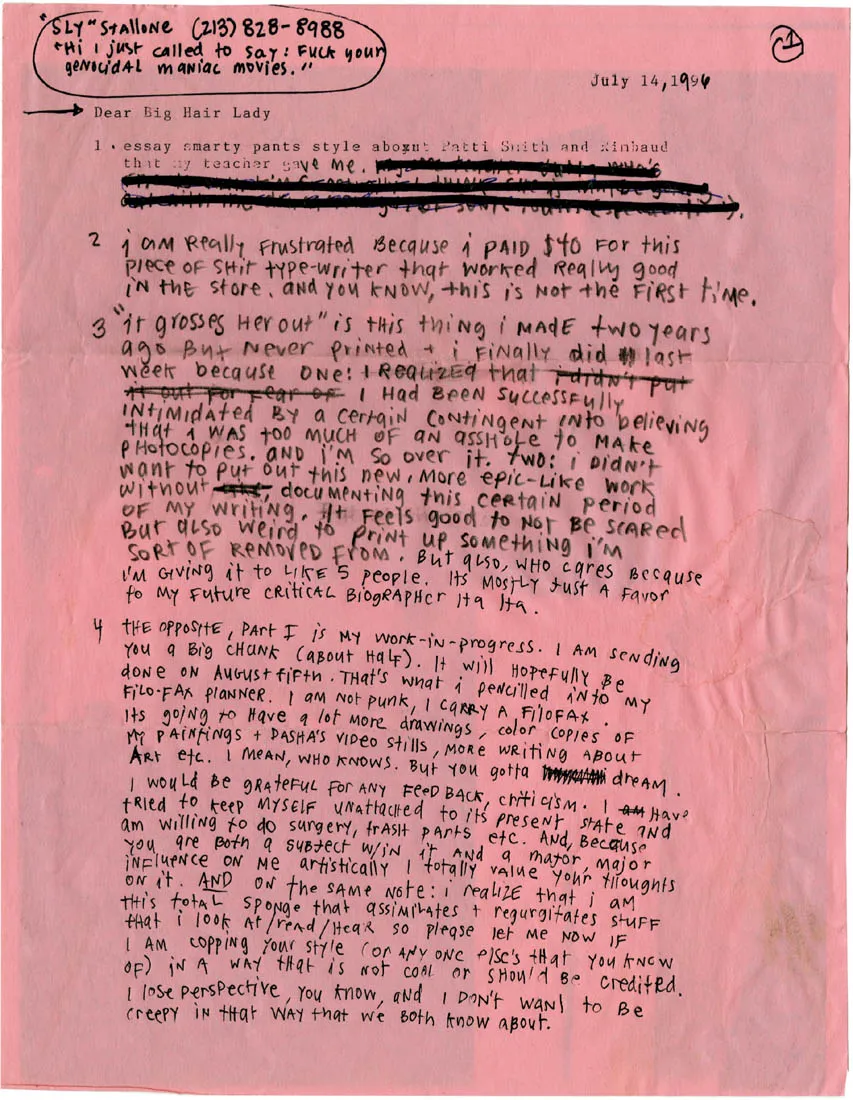 "SLY" Stallone (213) 828-8988
"Hi I just called to say: Fuck your
genocidal maniac movies."
1
July 14, 1996
Dear Big Hair Lady
1. essay smarty pants style about Patti Smith and Rimbaud
that my teacher gave me.
2 i am really frustrated because i paid $40 for this
piece of shit type-writer that worked really good
in the store. and you know, this is not the first time.
3 "it grosses her out" is this thing i made two years
ago but never printed + i finally did last
week because one: I realized that i didn't put
it out for fear of I had been successfully
intimidated by a certain contingent into believing
that i was too much of an asshole to make
photocopies. and i'm so over it. two: i didn't
want to put out this new, more epic-like work
without documenting this certain period
of my writing. It feels good to not be scared
but also weird to print up something i'm
sort of removed from. But also, who cares because
i'm giving it to like 5 people. Its mostly just a favor
to my future critical biographer Ha Ha.
4 the opposite, part I is my work-in-progress. I am sending
you a big chunk (about half). It will hopefully be
done on August fifth. That's what i pencilled into my
filo-fax planner. I am not punk, I carry a filofax.
Its going to have a lot more drawings, color copies of
my paintings + Dasha's video stills, more writing about
art etc. I mean, who knows. But you gotta dream.
I would be grateful for any feed back, criticism. I am have
tried to keep myself unattached to its present state and
am willing to do surgery, trash parts etc. And, because
you are both a subject w/in it and a major, major
influence on me artistically I totally value your thoughts
on it. AND on the same note: i realize that i am
this total sponge that assimilates + regurgitates stuff
that i look at/read/hear so please let me now if
I am copping your style (or any one else's that you know
of) in a way that is not cool or should be credited.
I lose perspective, you know, and I don't want to be
creepy in that way that we both know about.